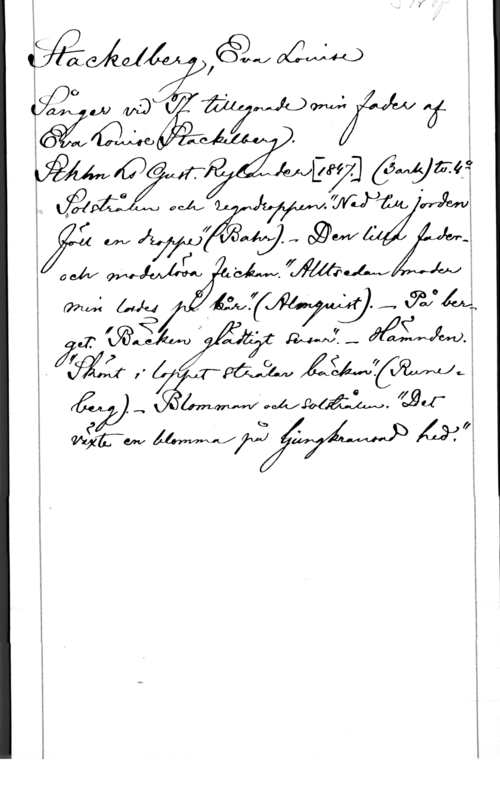 Stackelberg, Eva Louise
Sånger vid P. tillegnade min fader af
Eva Louise Stackelberg).
Sthlm hos Gust. Rylander [1847] (Bark) tv. 4:o
Solstrålen och regndroppen: "Ned till jorden
föll en droppe" (Bahr). - Den lilla fader-
och moderlösa flickan. "Alltsedan moder
min lades på bår." (Almquist). - På ber-
get. "Bäcken gladtigt susar". - Hämnden.
"Skönt i loppet strålar bäcken". (Rune-
berg). - Blomman och solstrålen. "Det
växte en blomma på ljungkransad hed."